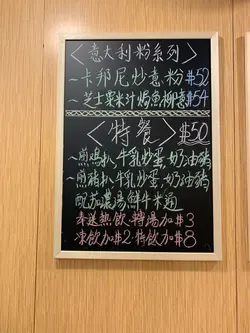 〈意大利粉系列〉
~卡邦尼炒意粉$52
~芝士粟米汁焗魚柳意$54
〈特餐〉$50
~煎鷄扒、牛乳炒蛋,奶油豬
~煎豬扒、牛乳炒蛋,奶油豬
配茄濃湯鮮牛米通
奉送熱飲、特湯加$3
凍飲加$2、特飲加$8